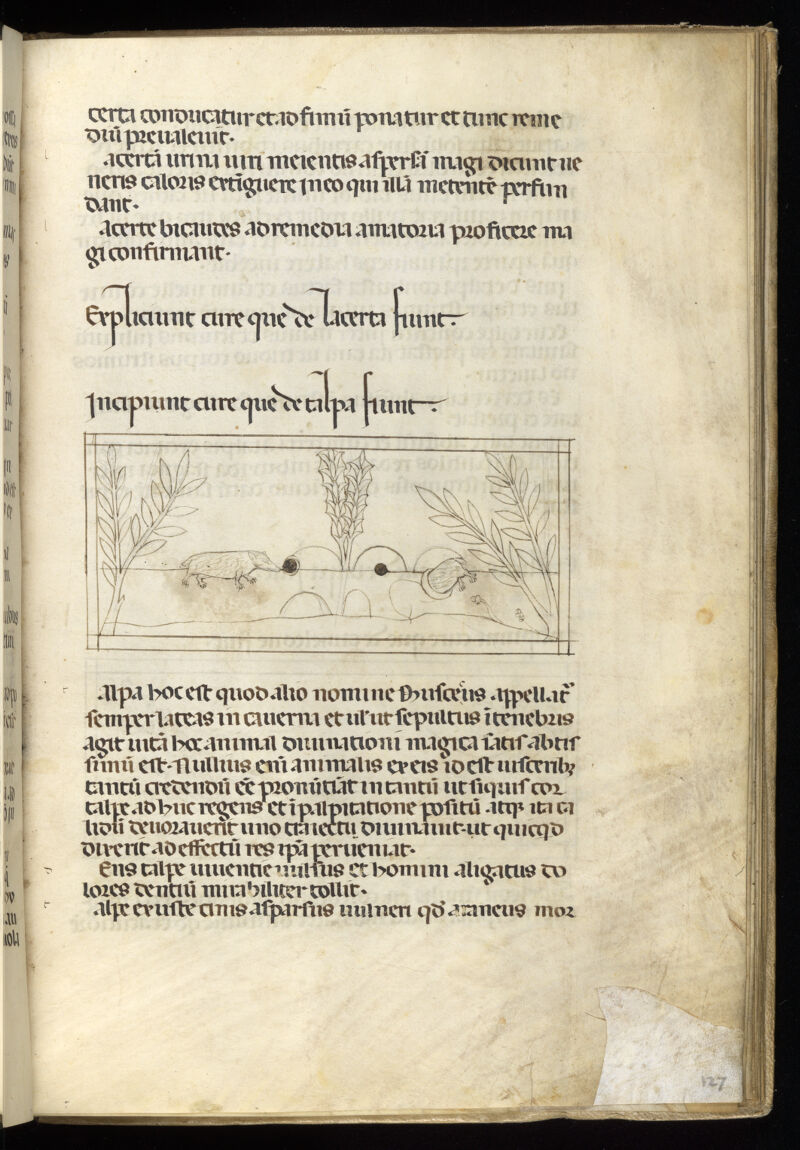 certa conducatur et ad fimū ponatur et tunc reme
diū preualeuit.
acerta urina uiri meientis aspersā magi dicunt ue
neris caloris extīguere in eo qui illā metentē perfun
dant.
acerte bicaudes ad remedia amatoria proficere ma
gi confirmant.
Expliciunt cure que de lacerta fiunt.
Incipiunt cure que de talpa fiunt.
alpa hoc est quod alio nomine appellat̄
semper lateas in cauerna et ut sepultus ī tenebris
agit uitā hoc animal diuinationi magica
sumū est. Nullius eni animalis ex eis id est uiscerib;
tantū credendū eē pronūtiāt in tantū ut siquis cor
talpe ad huc regens et ī palpitatione positū atq; ita ca
lidū deuorauerit uno traiectu diuinauit ut quicqd
dixerit ad effectū res ipā perueniat.
Ens talpe uiuentie uulsus et homini aligatus do
lores dentiū mirabiliter tollit.
alpe exuste cinis asparsus uulneri qd araneus mor
127